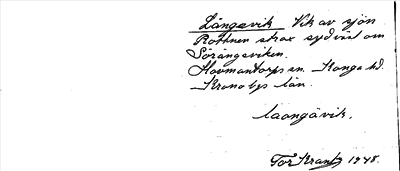 Långevik Vik av sjön
Rottnen strax sydväst om
Sörängsviken.
Hovmantorps sn. Konga hd.
Kronobgs län.
laongävik.
Tor Krantz 1948.